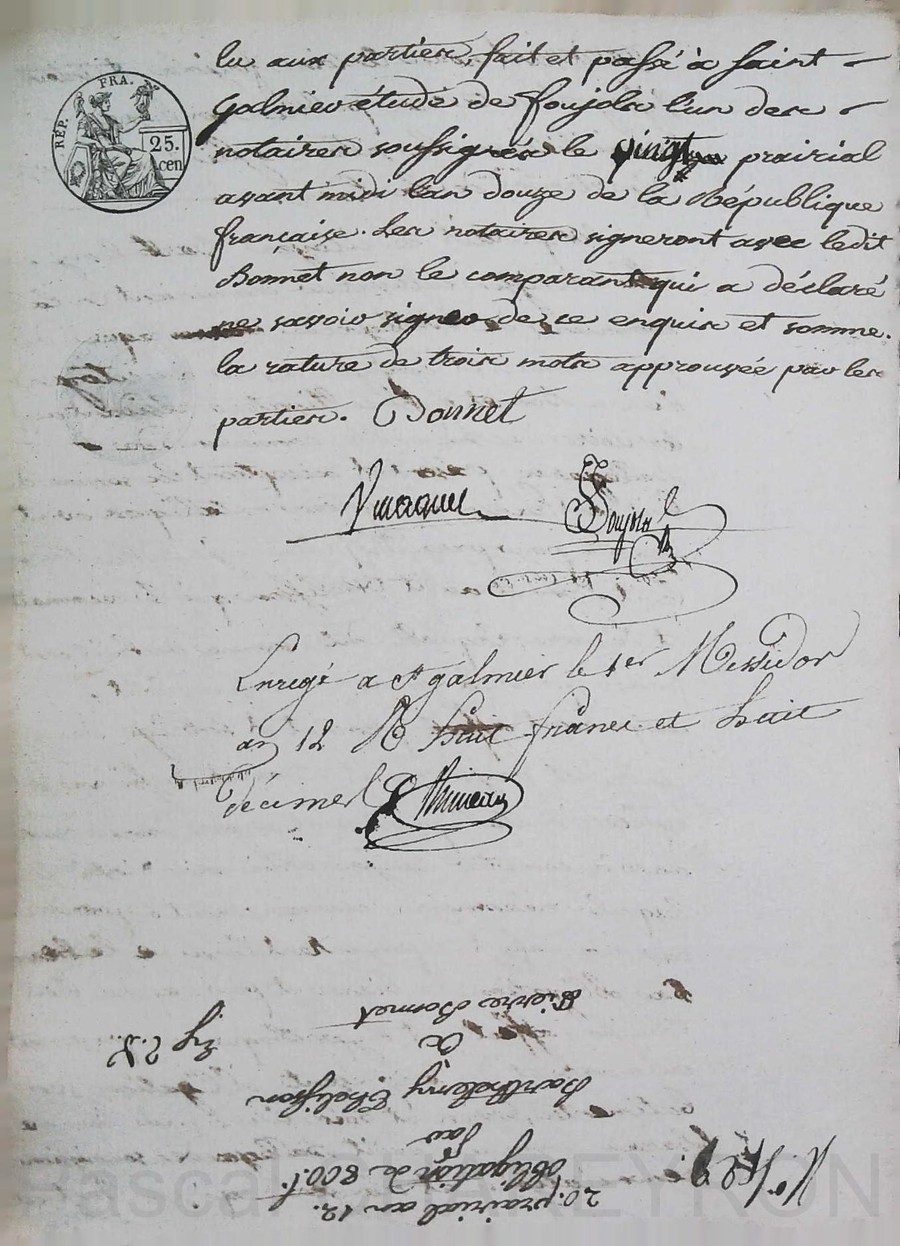 RÉP. FRA.
25.
cen
lu aux parties, fait et passé à saint
galmier étude de foujols l'un des
notaires soussignés le vingt prairial
avant midi l'an douze de la République
française. Les notaires signeront avec ledit
Bonnet non le comparant qui a déclaré
ne savoir signer de ce enquis et sommé.
la rature de trois mots approuvée par les
parties. Bonnet
foujols
Enregé a st galmier le 1er Messidor
an 12 R huit francs et huit
décimes
20. prairial an 12.
obligation de 800 f.
par
Barthelemy Thelisson
a
Pierre Bonnet